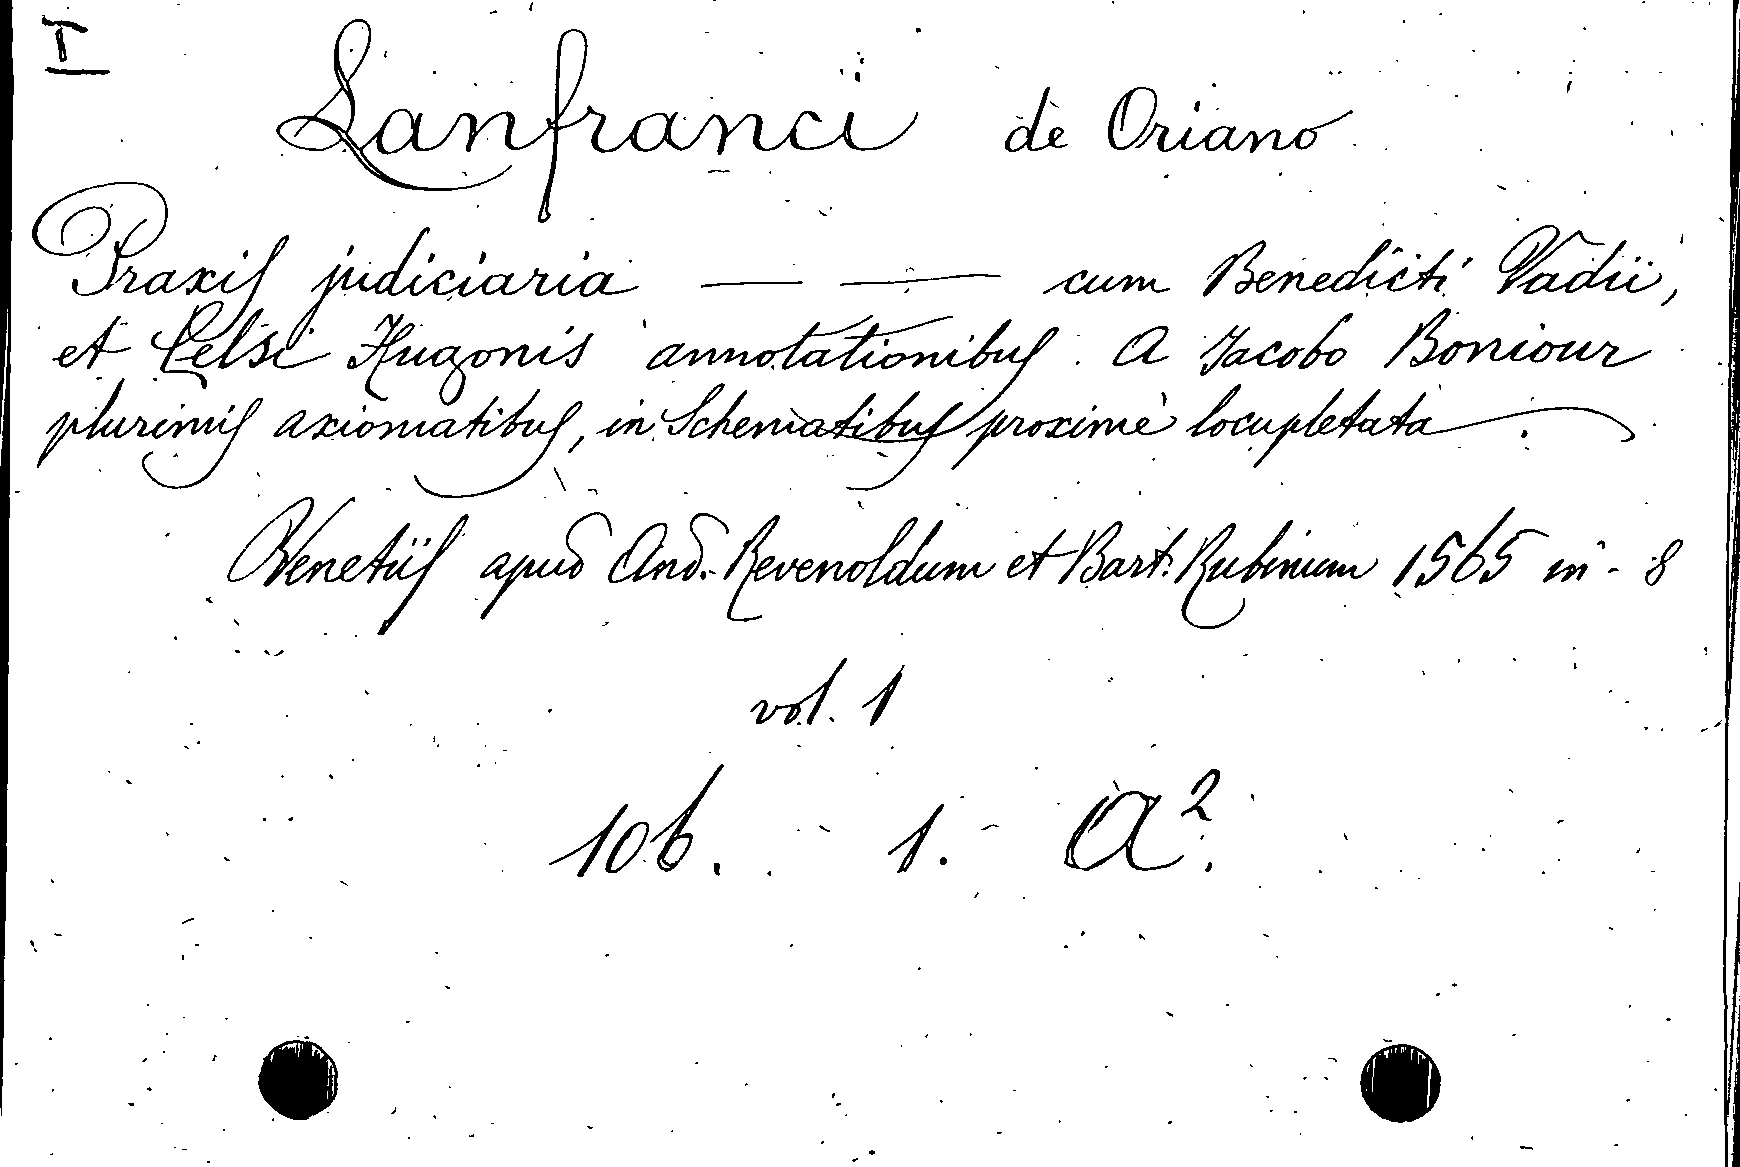 I
Lanfranci de Oriano
Praxis judiciaria — — cum Benedicti Vadii,
et Celsi Hugonis annotationibus. A Jacobo Boniour
plurimis axiomatibus, in Schematibus proximè locupletata
Venetiis apud And. Revenoldum et Bart. Rubinum 1565 in-8
vol. 1
106. 1. A².